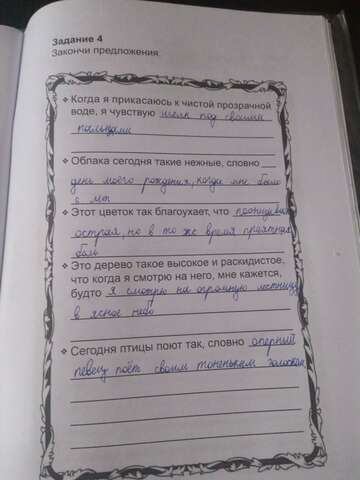 Задание 4
Закончи предложения.
❖ Когда я прикасаюсь к чистой прозрачной
воде, я чувствую шелк под своими
пальцами
❖ Облака сегодня такие нежные, словно
день моего рождения, когда мне было
6 лет
❖ Этот цветок так благоухает, что
острая, но в то же время приятная
боль
❖ Это дерево такое высокое и раскидистое,
что когда я смотрю на него, мне кажется,
будто я смотрю на огромную лестницу
в ясное небо
❖ Сегодня птицы поют так, словно оперный
певец поёт своим тоненьким голоском